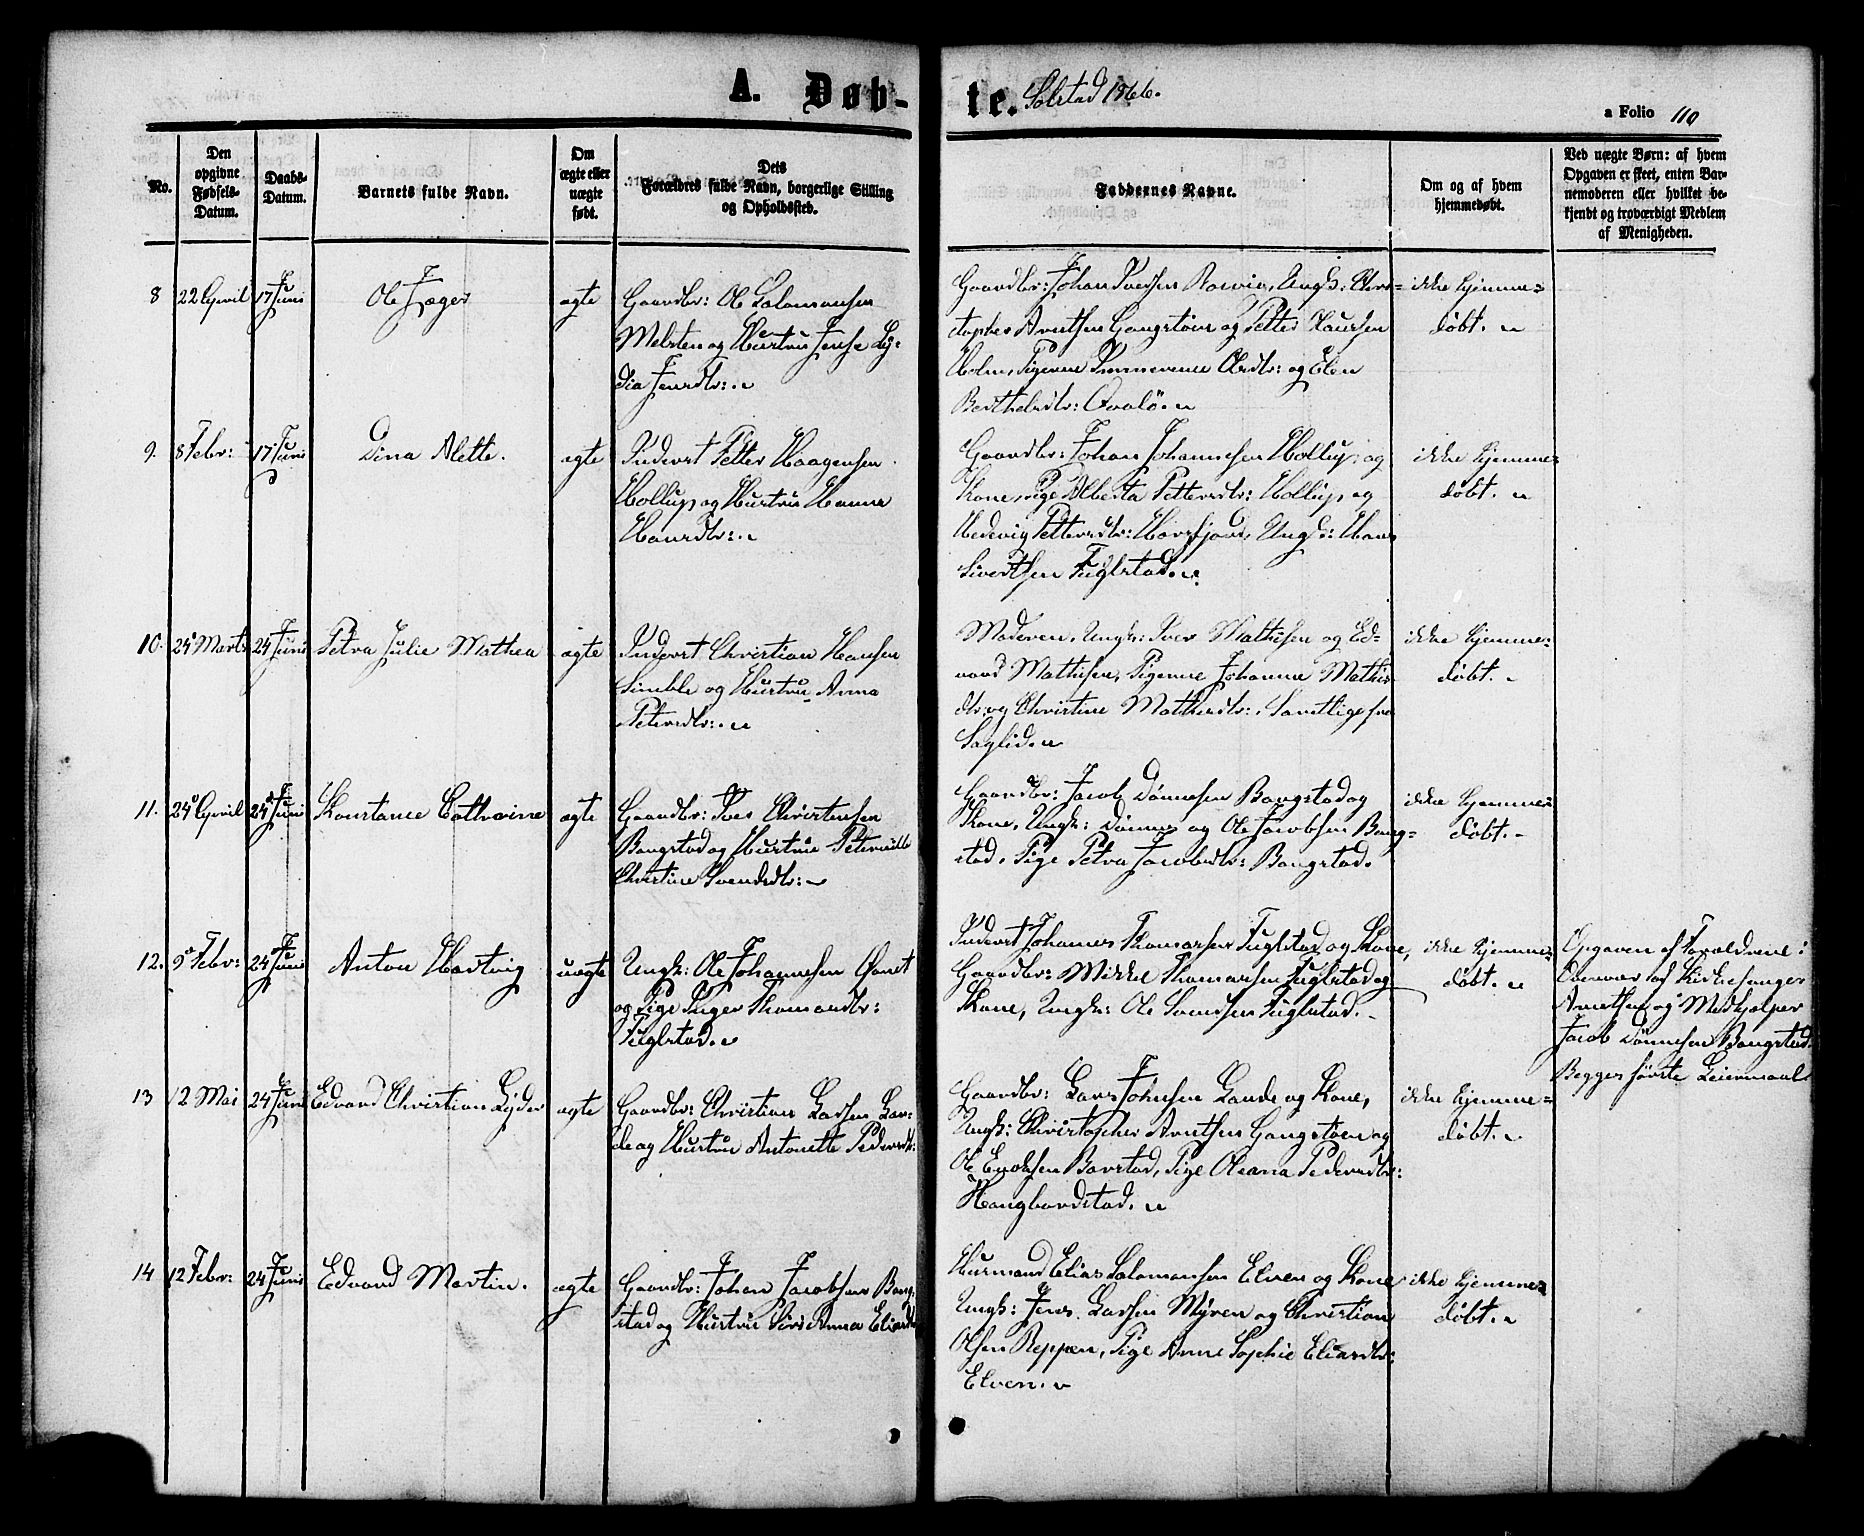 A. Døb-
te. Solstad 1866.
a Folio 110
No.
Den opgivne Fødsels-Datum.
Daabs-Datum.
Barnets fulde Navn.
Om ægte eller uægte født.
Dets Forældres fulde Navn, borgerlige Stilling og Opholdssted.
Faddernes Navne.
Om og af hvem hjemmedøbt.
Ved uægte Børn: af hvem Opgaven er skeet, enten Barnemoderen eller hvilket bekjendt og troværdigt Medlem af Menigheden.
8 22 April 17 Juni Ole Jæger ægte
Gaardbr: Ole Salamonsen
Melsten og Hustru Jense Ly-
dia Jensdtr:
Gaardbr: Johan Iversen, Ungk: Chris-
topher Arntsen Gangstøen og Petter
Holm, Pigerne Olsdtr: og Elen
Berthelsdtr:
ikke hjemme-
døbt.
9. 8 Febr: 17 Juni Dina Alette. ægte
Inderst Petter Haagensen
Hollup og Hustru Hanna
Hansdtr:
Gaardbr: Johan Johannesen Hollup og
Kone, Pige Alberta Pettersdtr: Hollup, og
Hedevig Pettersdtr: Horsfjord, Ungk: Hans
Sivertsen Fuglstad.
ikke hjemme-
døbt.
10. 25 Marts 24 Juni Petra Julie Mathea ægte
Inderst Christian Hansen
Simble og Hustru Anna
Petersdtr:
Moderen, Ungk: Iver Mathisen og Ed-
vard Mathisen, Pigerne Johanna Mathis-
dtr: og Christine Mathisdtr:, Samtlige fra
Saglid.
ikke hjemme-
døbt.
11. 24 April 24 Juni Konstance Cathrine ægte
Gaardbr: Iver Christensen
Bangstad og Hustru Peternille
Christine Svendsdtr:
Gaardbr: Jacob Dønnesen Bangstad og
Kone, Ungk: Dønnes og Ole Jacobsen Bang-
stad, Pige Petra Jacobsdtr: Bangstad.
ikke hjemme-
døbt.
12. 9 Febr: 24 Juni Anton Hartvig uægte
Ungk: Ole Johannesen
og Pige Inger Thomasdtr:
Fuglstad.
Inderst Johannes Thomassen Fuglstad og Kone,
Gaardbr: Mikkel Thomassen Fuglstad og
Kone, Ungk: Ole Svendsen Fuglstad.
ikke hjemme-
døbt.
Opgaven af Forældrene;
Kirkesanger
Arntsen og Medhjælper
Jacob Dønnesen Bangstad.
Begges første Leiermaal
13 12 Mai 24 Juni Edvard Christian Lyder ægte
Gaardbr: Christian Larsen Lan-
de og Hustru Antonette Pedersdtr:
Gaardbr: Lars Johnsen Lande og Kone,
Ungk: Christopher Arntsen Gangstøen og
Ole Enoksen Barstad, Pige Oleana Pedersdtr:
Kongbordstad.
ikke hjemme-
døbt.
14 12 Febr: 24 Juni Edvard Martin. ægte
Gaardbr: Johan Jacobsen Bang-
stad og Hustru Siri Anna Eliasdtr
Husmand Elias Salamonsen Elven og Kone,
Ungk: Jens Larsen Myren og Christian
Olsen Reppen, Pige Anne Sophie Eliasdtr:
Elven.
ikke hjemme-
døbt.